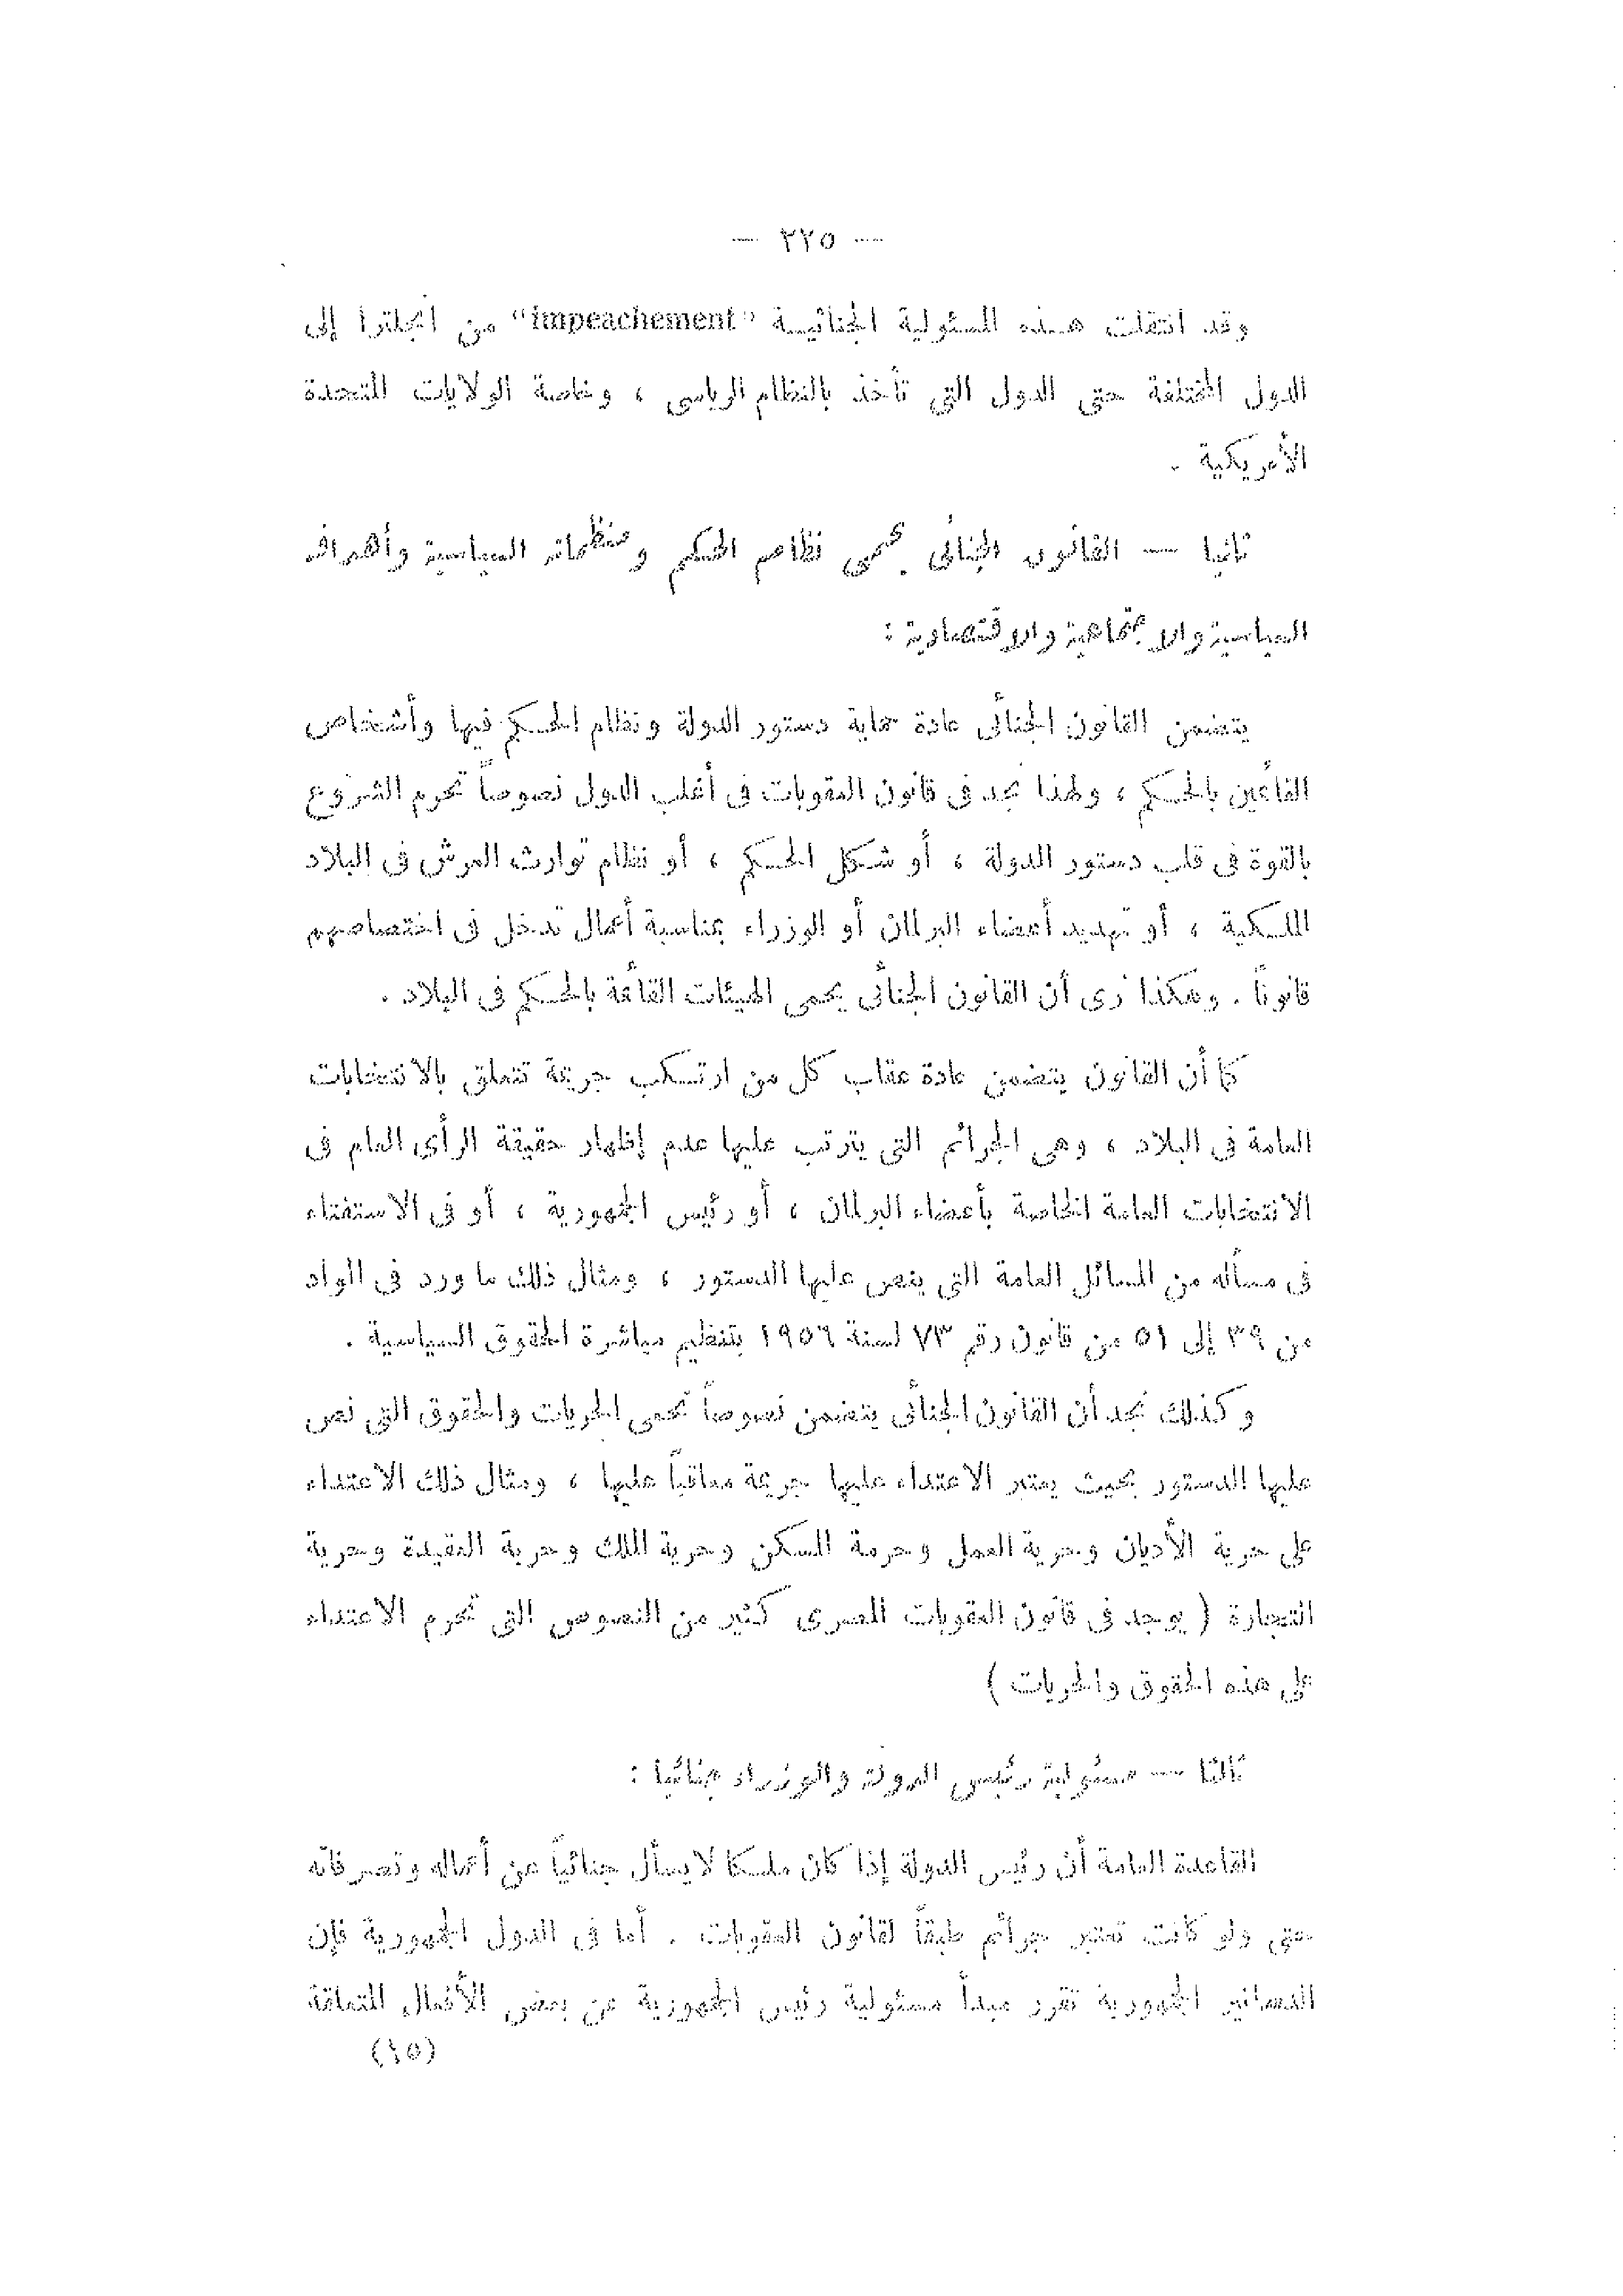 — ٢٢٥ —
وقد انتقلت هذه المسئولية الجنائية "impeachement" من انجلترا إلى
الدول المختلفة حتى الدول التى تأخذ بالنظام الرياسى ، وخاصة الولايات المتحدة
الأمريكية .
ثانيا — القانون الجنائى يحمى نظام الحكم ومنظماته السياسية وأهدافه
السياسية والاجتماعية والاقتصادية :
يتضمن القانون الجنائى عادة حماية دستور الدولة ونظام الحكم فيها وأشخاص
القائمين بالحكم ، ولهذا نجد فى قانون العقوبات فى أغلب الدول نصوصاً تحرم الشروع
بالقوة فى قلب دستور الدولة ، أو شكل الحكم ، أو نظام توارث العرش فى البلاد
الملكية ، أو تهديد أعضاء البرلمان أو الوزراء بمناسبة أعمال تدخل فى اختصاصهم
قانوناً . وهكذا نرى أن القانون الجنائى يحمى الهيئات القائمة بالحكم فى البلاد .
كما أن القانون يتضمن عادة عقاب كل من ارتكب جريمة تتعلق بالانتخابات
العامة فى البلاد ، وهى الجرائم التى يترتب عليها عدم إظهار حقيقة الرأى العام فى
الانتخابات العامة الخاصة بأعضاء البرلمان ، أو رئيس الجمهورية ، أو فى الاستفتاء
فى مسألة من المسائل العامة التى ينص عليها الدستور ، ومثال ذلك ما ورد فى المواد
من ٣٩ إلى ٥١ من قانون رقم ٧٣ لسنة ١٩٥٦ بتنظيم مباشرة الحقوق السياسية .
وكذلك نجد أن القانون الجنائى يتضمن نصوصاً تحمى الحريات والحقوق التى نص
عليها الدستور بحيث يعتبر الاعتداء عليها جريمة معاقباً عليها ، ومثال ذلك الاعتداء
على حرية الأديان وحرية العمل وحرمة المسكن وحرية الملك وحرية العقيدة وحرية
التجارة ( يوجد فى قانون العقوبات المصرى كثير من النصوص التى تحرم الاعتداء
على هذه الحقوق والحريات )
ثالثا — مسئولية رئيس الدولة والوزراء جنائيا :
القاعدة العامة أن رئيس الدولة إذا كان ملكا لا يسأل جنائياً عن أعماله وتصرفاته
حتى ولو كانت تعتبر جرائم طبقاً لقانون العقوبات . أما فى الدول الجمهورية فإن
الدساتير الجمهورية تقرر مبدأ مسئولية رئيس الجمهورية عن بعض الأفعال المتعلقة
(١٥)